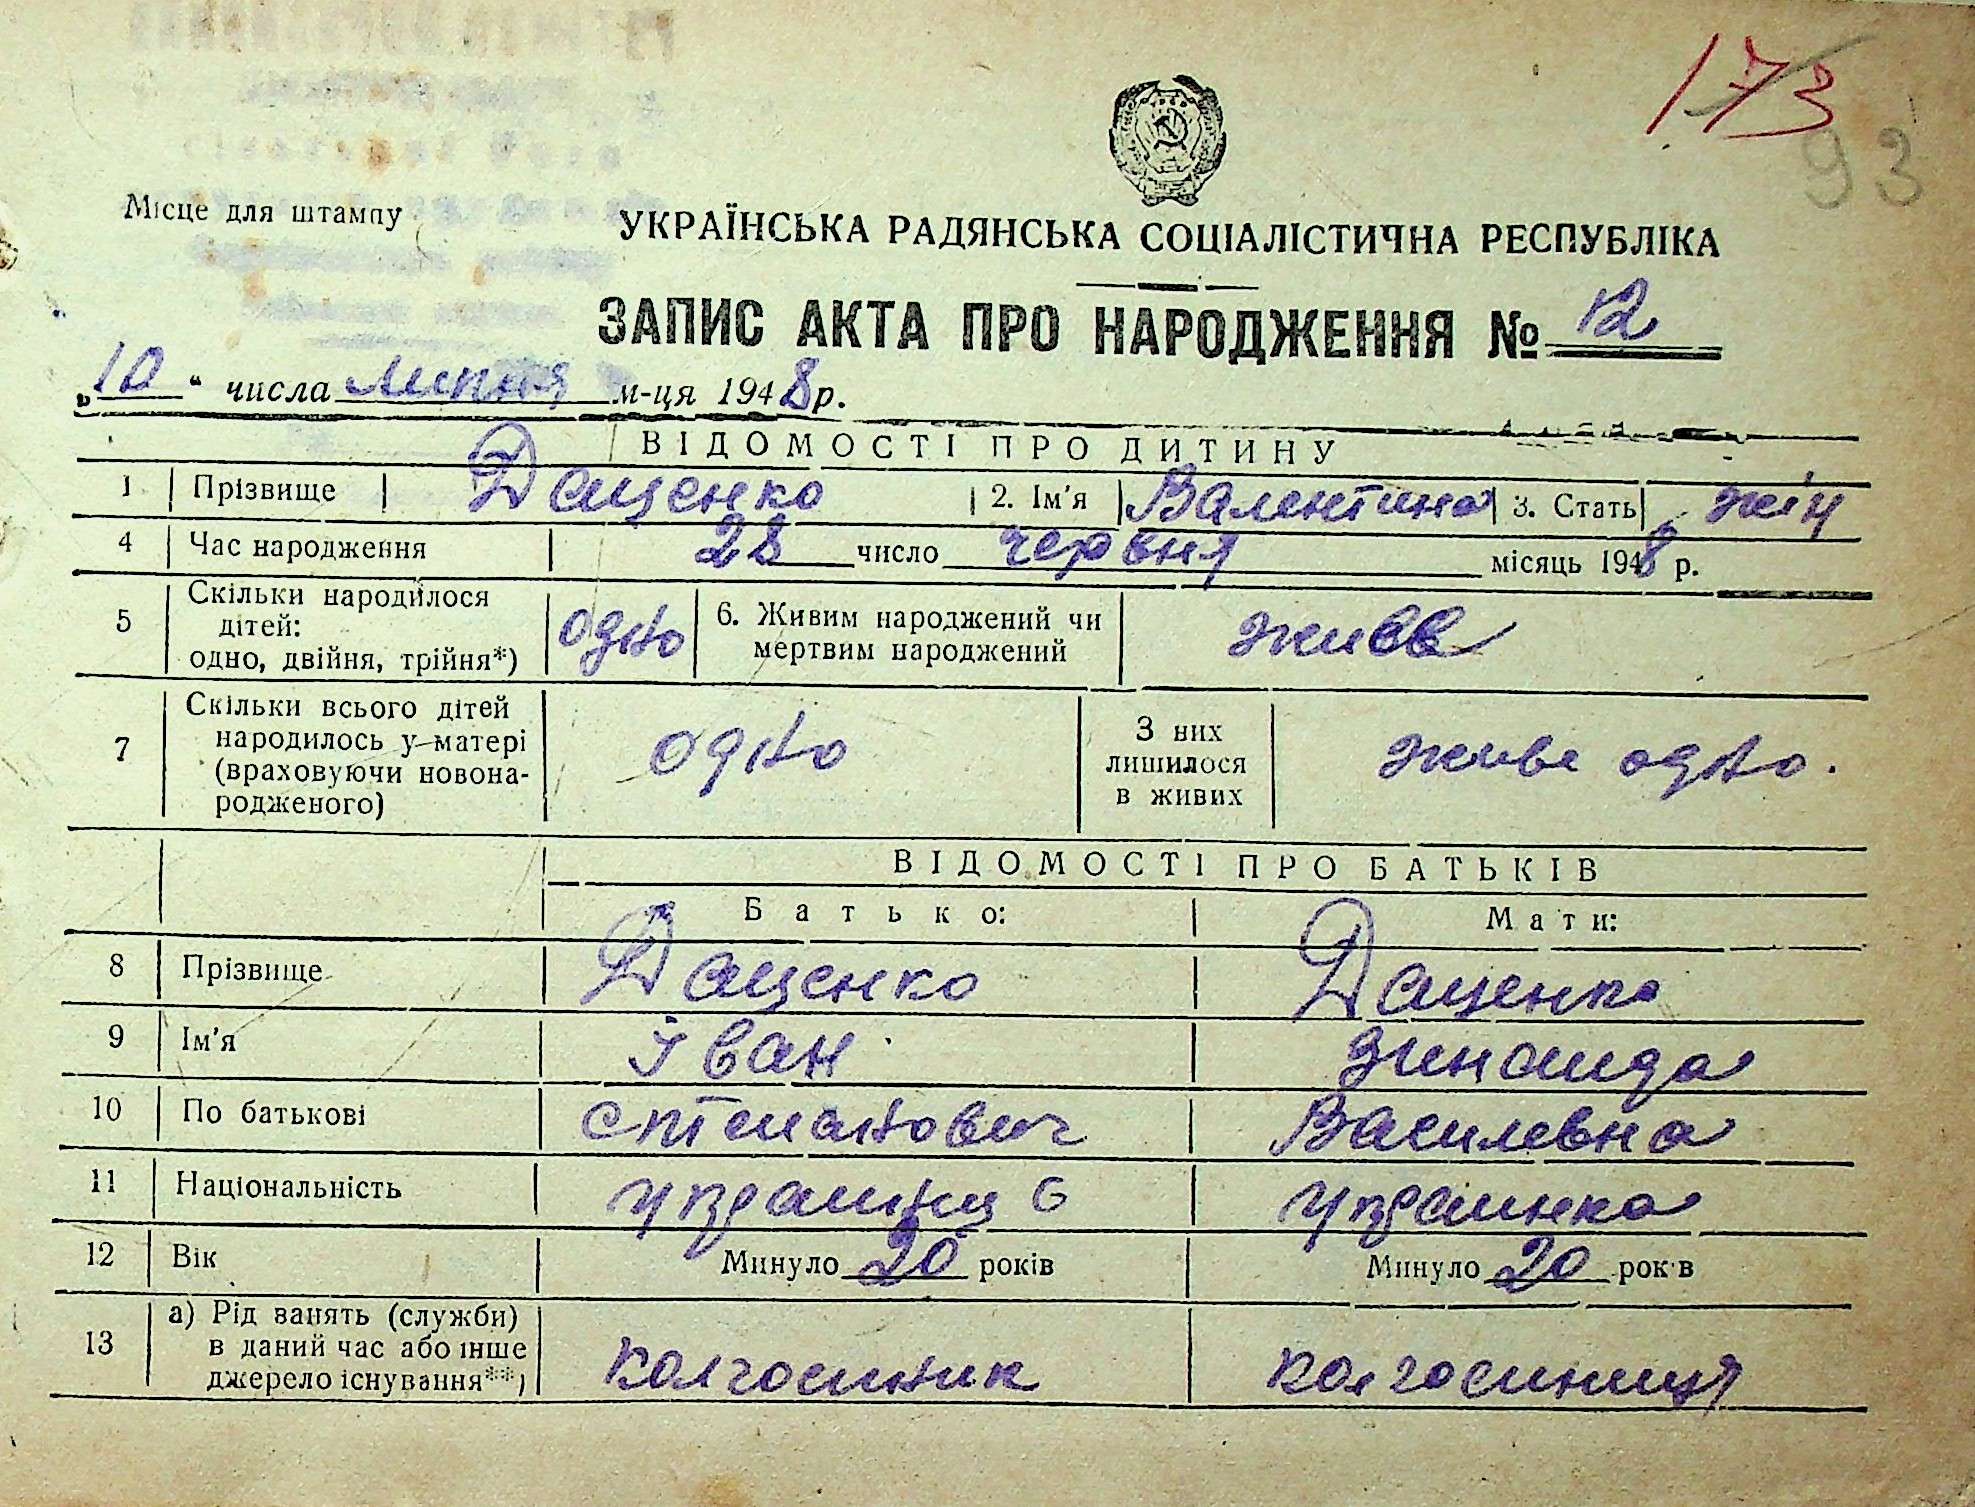 173
93
Місце для штампу
УКРАЇНСЬКА РАДЯНСЬКА СОЦІАЛІСТИЧНА РЕСПУБЛІКА
ЗАПИС АКТА ПРО НАРОДЖЕННЯ № 12
„10“ числа липня м-ця 1948 р.
ВІДОМОСТІ ПРО ДИТИНУ
1 Прізвище Даценко 2. Ім'я Валентина 3. Стать жін
4 Час народження 28 число червня місяць 1948 р.
5 Скільки народилося дітей: одно, двійня, трійня*) одно 6. Живим народжений чи мертвим народжений живе
7 Скільки всього дітей народилось у матері (враховуючи новонародженого) одно З них лишилося в живих живе одно.
ВІДОМОСТІ ПРО БАТЬКІВ
Батько: Мати:
8 Прізвище Даценко Даценко
9 Ім'я Іван Зинаида
10 По батькові Степанович Василевна
11 Національність українец украинка
12 Вік Минуло 20 років Минуло 20 років
13 а) Рід занять (служби) в даний час або інше джерело існування**) колгоспник колгоспниця